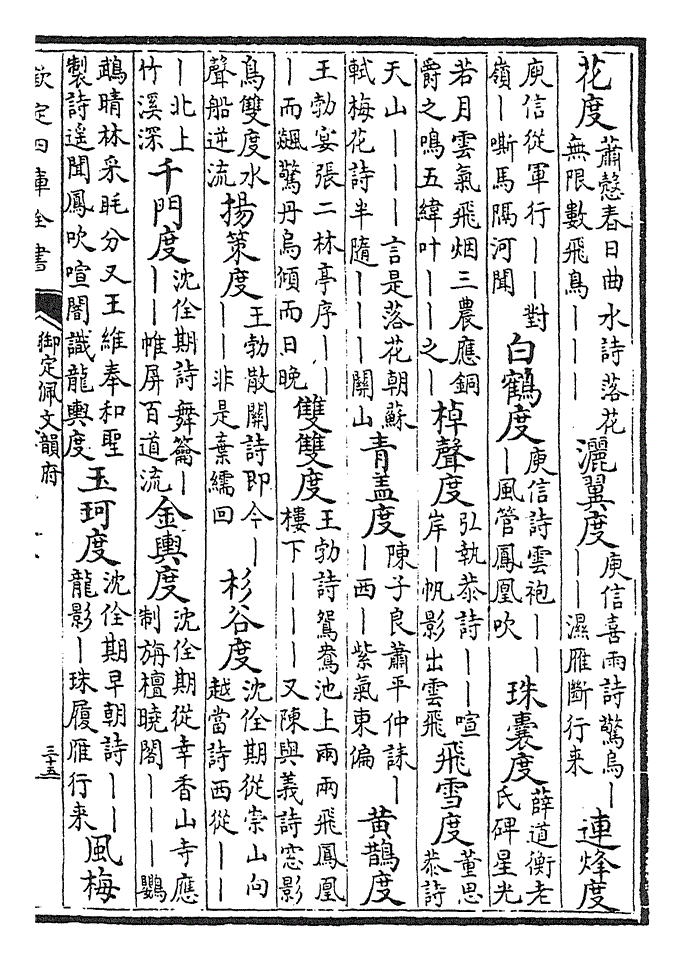 花度蕭慤春日曲水詩落花
無限數飛鳥｜｜｜
灑翼度庾信喜雨詩驚烏｜
｜｜濕雁斷行来
連烽度
庾信從軍行｜｜對
嶺｜嘶馬隅河聞
白鶴度庾信詩雲袍｜｜
｜風管鳳凰吹
珠囊度薛道衡老
氏碑星光
若月雲氣飛烟三農應銅
爵之鳴五緯叶｜｜之｜
棹聲度弘執恭詩｜｜喧
岸｜帆影出雲飛
飛雪度董思
恭詩
天山｜｜｜言是落花朝蘇
軾梅花詩半隨｜｜｜關山
青盖度陳子良蕭平仲誄｜
｜西｜紫氣東偏
黄鵲度
王勃宴張二林亭序｜｜
｜而飊驚丹烏傾而日晚
雙雙度王勃詩鴛鴦池上兩兩飛鳳凰
樓下｜｜｜又陳與義詩窓影
鳥雙度水
聲船逆流
揚策度王勃散關詩即今｜
｜｜非是棄繻回
杉谷度沈佺期從崇山向
越當詩西從｜｜
｜北上
竹溪深
千門度沈佺期詩舞籥｜
｜｜帷屏百道流
金輿度沈佺期從幸香山寺應
制旃檀曉閣｜｜｜鸚
鵡晴林采眊分又王維奉和聖
製詩遥聞鳳吹喧闇識龍輿度
玉珂度沈佺期早朝詩｜｜
龍影｜珠履雁行来
風梅
欽定四庫全書
御定佩文韻府
三十五